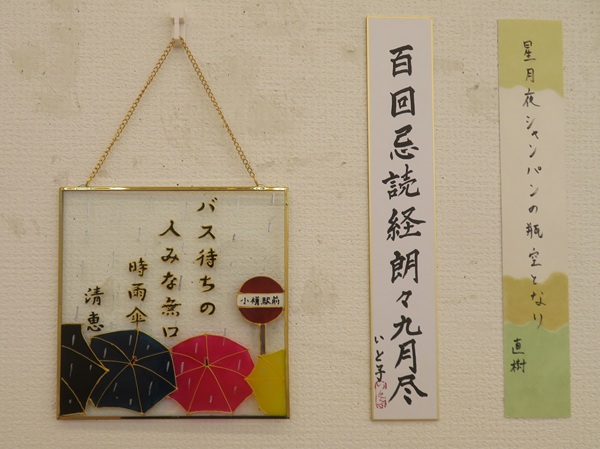 バス待ちの
人みな無口
時雨傘
清恵
小樽駅前
百回忌読経朗々九月尽
いと子
星月夜シャンパンの瓶空となり
直樹